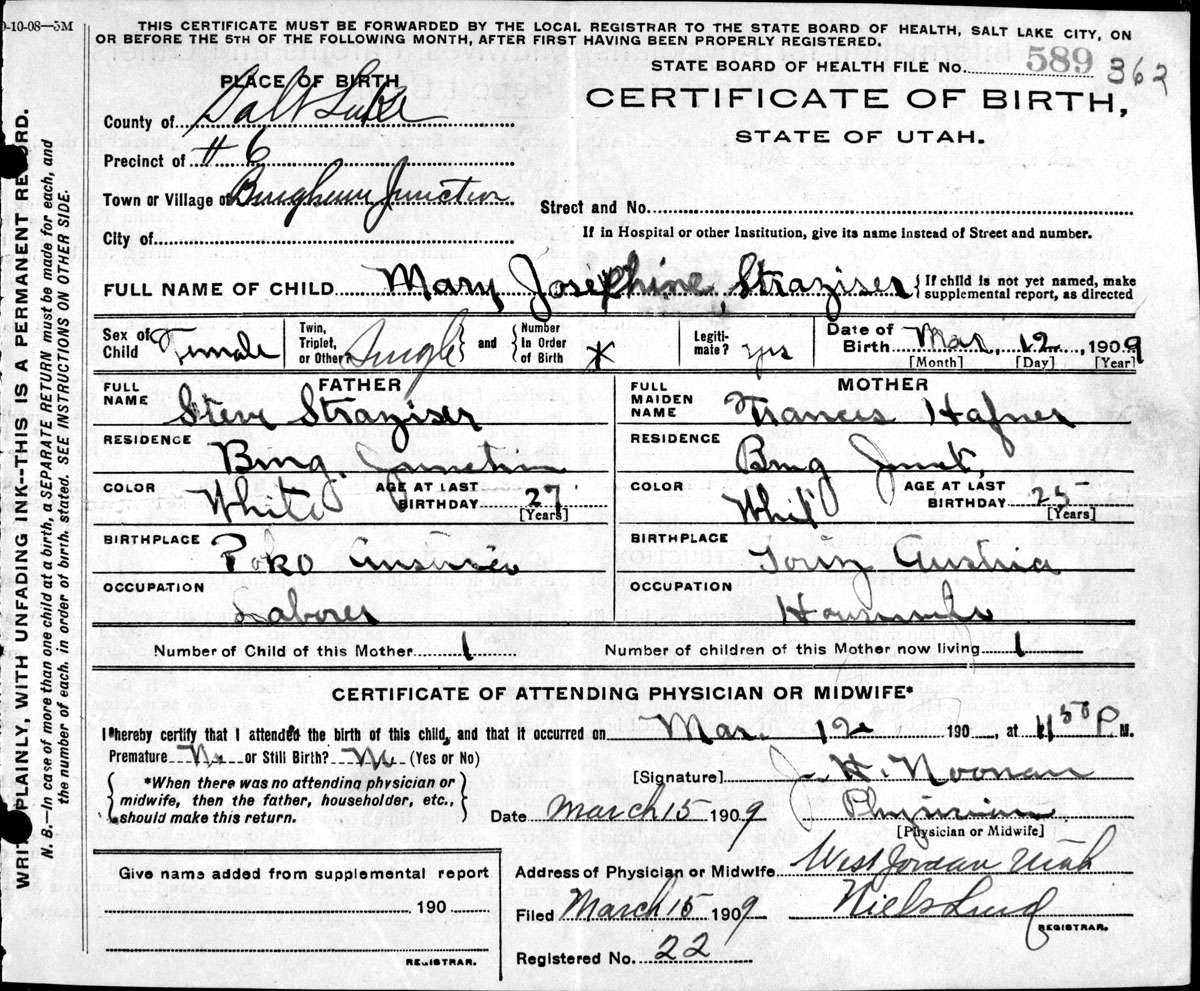 0-10-08—5M
THIS CERTIFICATE MUST BE FORWARDED BY THE LOCAL REGISTRAR TO THE STATE BOARD OF HEALTH, SALT LAKE CITY, ON
OR BEFORE THE 5TH OF THE FOLLOWING MONTH, AFTER FIRST HAVING BEEN PROPERLY REGISTERED.
STATE BOARD OF HEALTH FILE No. 589 362
PLACE OF BIRTH
CERTIFICATE OF BIRTH,
STATE OF UTAH.
County of Salt Lake
Precinct of # 6
Town or Village of Bingham Junction
Street and No.
City of
If in Hospital or other Institution, give its name instead of Street and number.
FULL NAME OF CHILD Mary Josephine Straziser { If child is not yet named, make
supplemental report, as directed
Sex of Child Female
Twin, Triplet, or Other? Single } and { Number In Order of Birth
Legitimate? yes
Date of Birth Mar. 12, 1909
[Month] [Day] [Year]
FATHER
FULL NAME Steve Straziser
RESIDENCE Bing. Junction
COLOR White AGE AT LAST BIRTHDAY 27 [Years]
BIRTHPLACE Austria
OCCUPATION Laborer
MOTHER
FULL MAIDEN NAME Frances Hafner
RESIDENCE Bing Junct.
COLOR White AGE AT LAST BIRTHDAY 25 [Years]
BIRTHPLACE Austria
OCCUPATION Housewife
Number of Child of this Mother 1
Number of children of this Mother now living 1
CERTIFICATE OF ATTENDING PHYSICIAN OR MIDWIFE*
I hereby certify that I attended the birth of this child, and that it occurred on Mar. 12 190 , at P. M.
Premature No or Still Birth? No (Yes or No)
{ *When there was no attending physician or
midwife, then the father, householder, etc.,
should make this return. }
[Signature] J. H. Noonan
Date March 15 1909 Physician
[Physician or Midwife]
Address of Physician or Midwife West Jordan Utah
Filed March 15 1909 Niels Lind
REGISTRAR.
Registered No. 22
Give name added from supplemental report
190
REGISTRAR.
WRITE PLAINLY, WITH UNFADING INK—THIS IS A PERMANENT RECORD.
N. B.—In case of more than one child at a birth, a SEPARATE RETURN must be made for each, and
the number of each, in order of birth, stated. SEE INSTRUCTIONS ON OTHER SIDE.